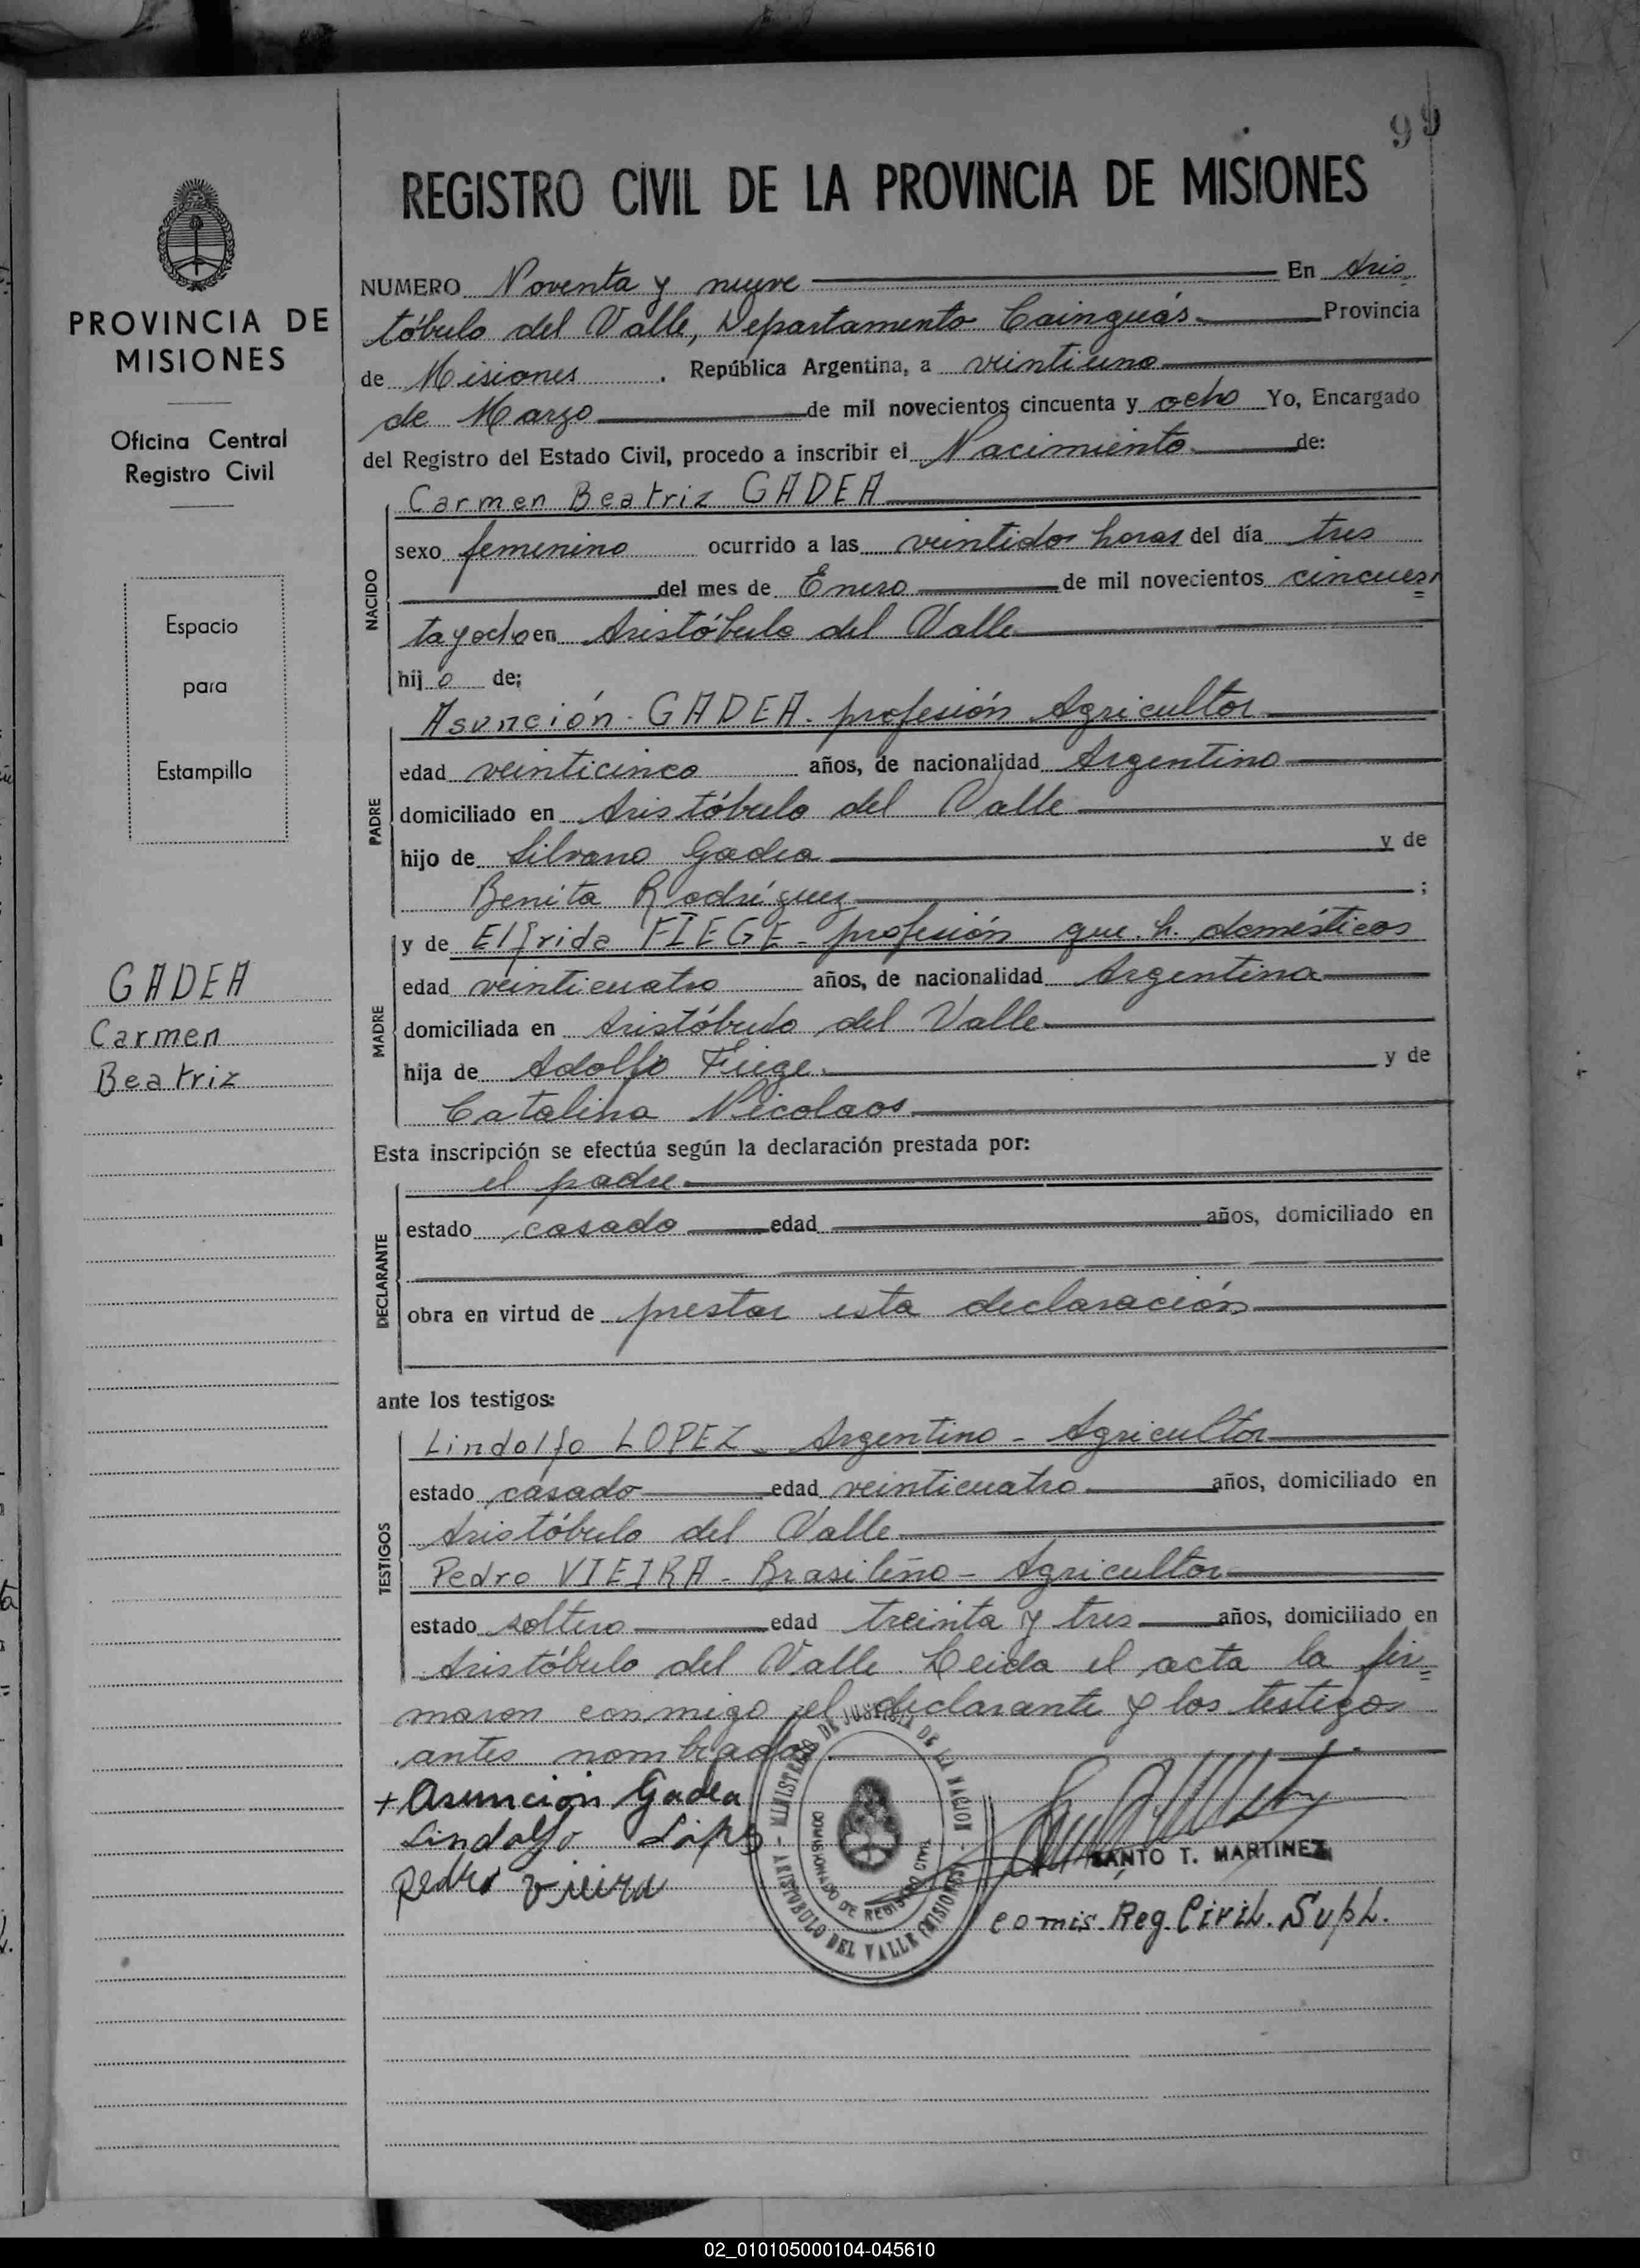 99
REGISTRO CIVIL DE LA PROVINCIA DE MISIONES
PROVINCIA DE
MISIONES
Oficina Central
Registro Civil
Espacio
para
Estampilla
GADEA
Carmen
Beatriz
NUMERO Noventa y nueve En Aris
tóbulo del Valle, Departamento Cainguás Provincia
de Misiones, República Argentina, a veintiuno
de Marzo de mil novecientos cincuenta y ocho Yo, Encargado
del Registro del Estado Civil, procedo a inscribir el Nacimiento de:
NACIDO
Carmen Beatriz GADEA
sexo femenino ocurrido a las veintidos horas del día tres
del mes de Enero de mil novecientos cincuen=
ta y ocho en Aristóbulo del Valle
hijo de:
PADRE
Asunción - GADEA - profesión Agricultor
edad veinticinco años, de nacionalidad Argentino
domiciliado en Aristóbulo del Valle
hijo de Silvano Gadea y de
Benita Rodríguez ;
MADRE
y de Elfrida FIEGE - profesión que. h. domésticos
edad veinticuatro años, de nacionalidad Argentina
domiciliada en Aristóbulo del Valle
hija de Adolfo Fiege y de
Catalina Nicolaos
Esta inscripción se efectúa según la declaración prestada por:
DECLARANTE
el padre
estado casado edad años, domiciliado en
obra en virtud de prestar esta declaración
ante los testigos:
TESTIGOS
Lindolfo LOPEZ - Argentino - Agricultor
estado casado edad veinticuatro años, domiciliado en
Aristóbulo del Valle
Pedro VIEIRA - Brasileño - Agricultor
estado soltero edad treinta y tres años, domiciliado en
Aristóbulo del Valle. Leida el acta la fir=
maron conmigo el declarante y los testigos
antes nombrados.
+ Asuncion Gadea
Lindolfo Lopez
Pedro Vieira
MINISTERIO DE JUSTICIA DE LA NACION
COMISIONADO DE REGISTRO CIVIL
ARISTOBULO DEL VALLE (MISIONES)
SANTO T. MARTINEZ
comis. Reg. Civil. Supl.
02_010105000104-045610